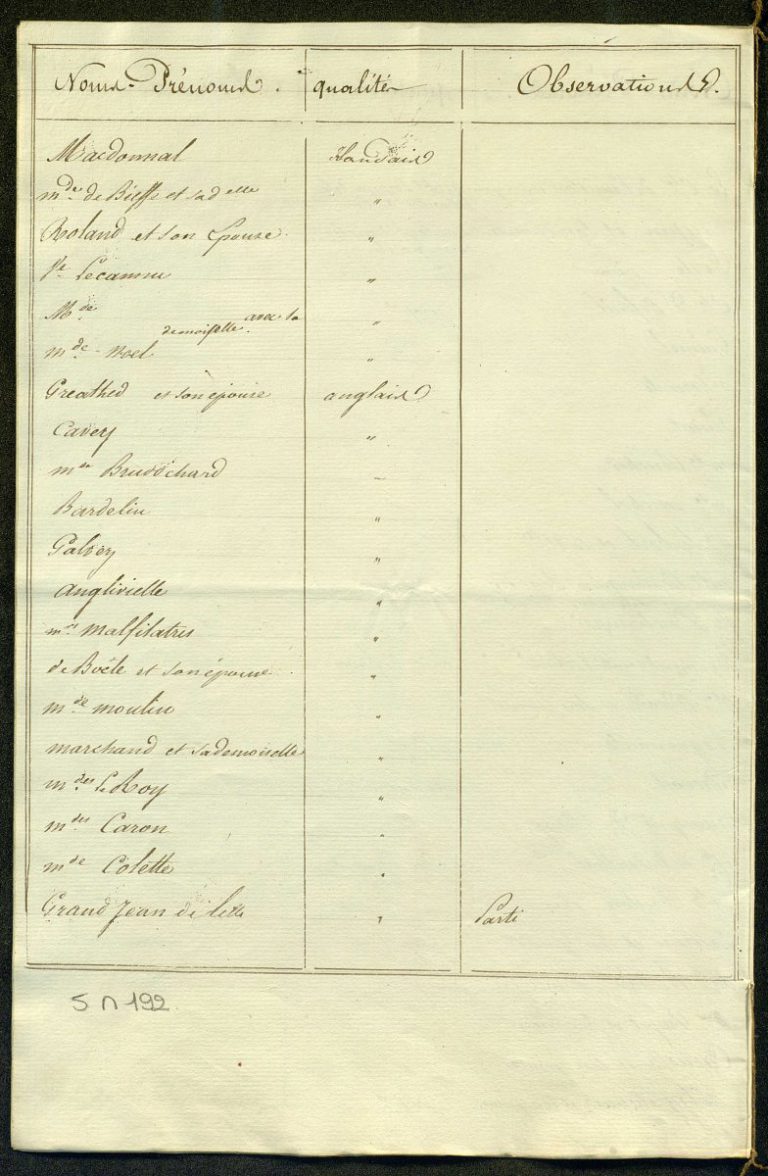 Noms-Prénoms. qualités Observations.
Macdonnal
mde. de Bieffe et sa delle "
Roland et son Epouse. "
Lecamu "
Mde avec sa
demoiselle. "
mde. Noel "
Greathed et son épouse anglais
Cavery "
mde Brusschard -
Bardelin "
Galvey "
anglivielle "
Malfilatres "
de Boële et son épouse "
mde moulin "
marchand et sa demoiselle "
mdes le Roy "
mdes Caron "
mde Colette "
Grand Jean de "
Parti
5 n 192